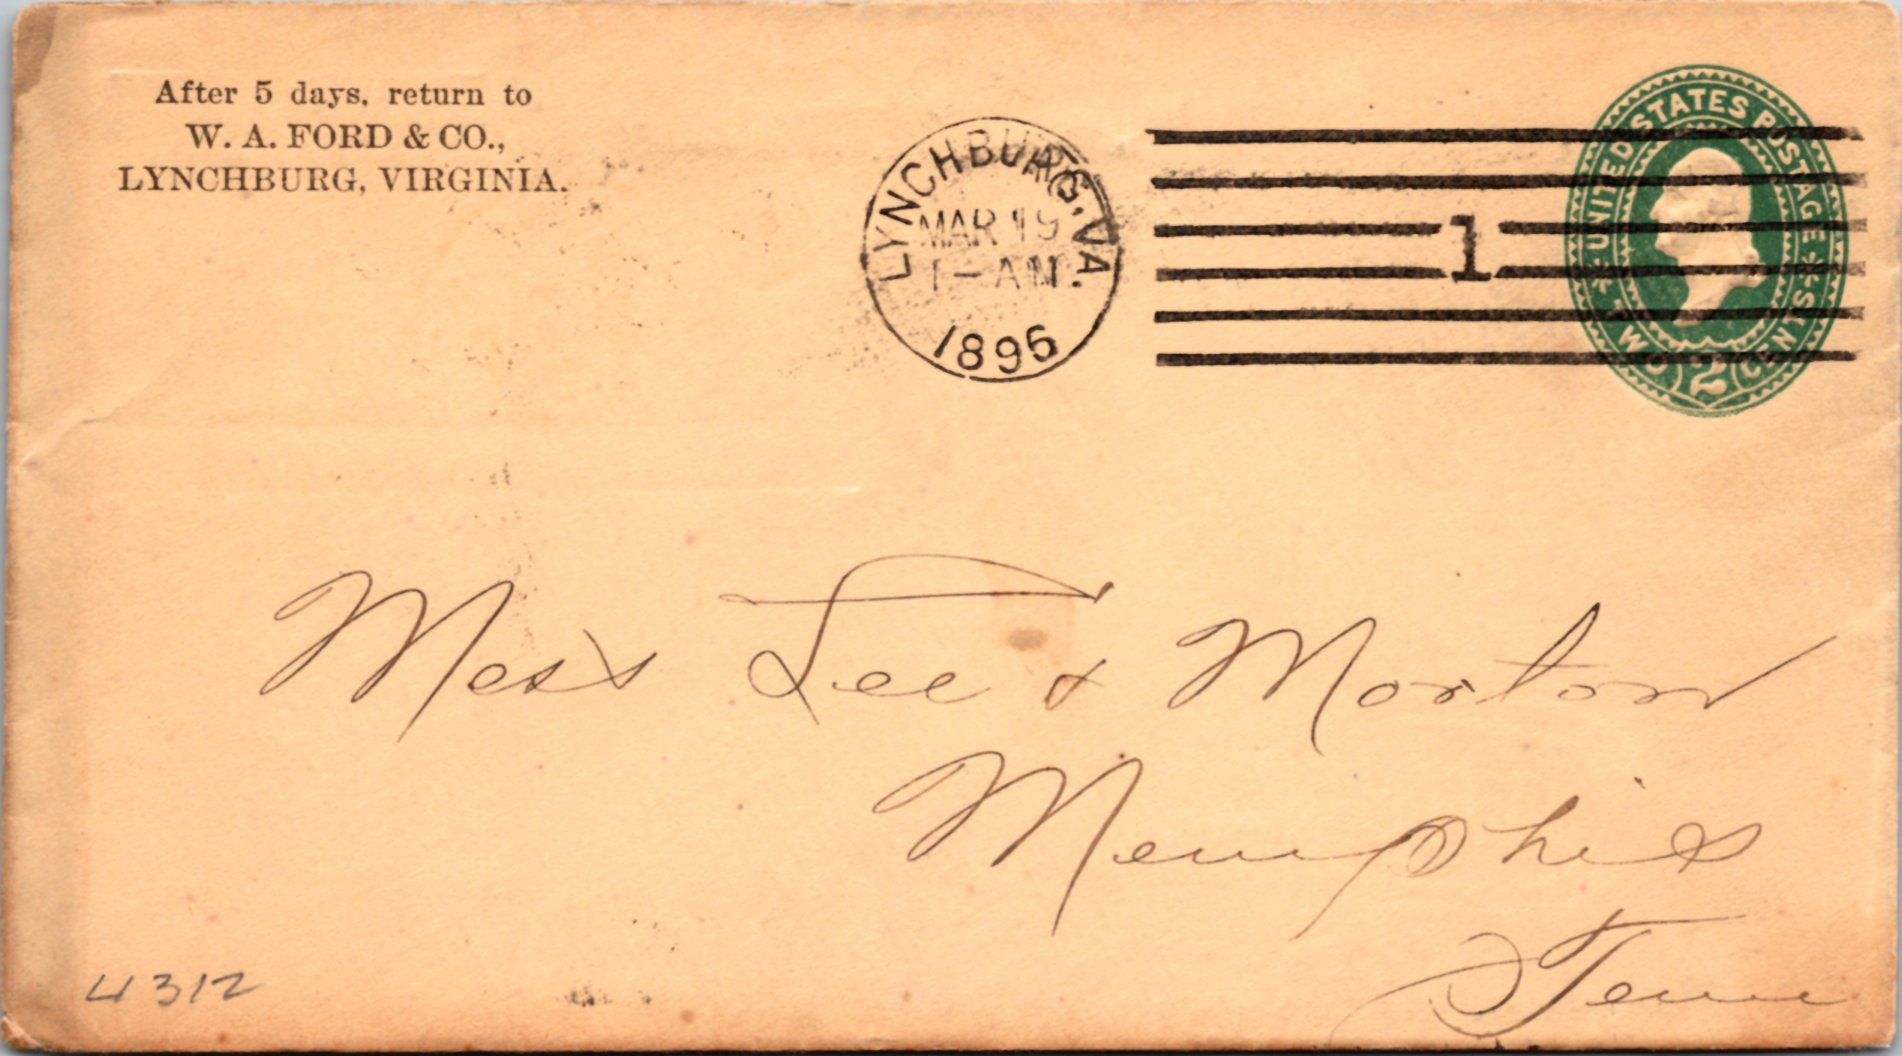 After 5 days, return to
W. A. FORD & CO.,
LYNCHBURG, VIRGINIA.
LYNCHBURG, VA.
MAR 19
1 - AM.
1896
1
UNITED STATES POSTAGE
* TWO 2 CENTS *
Mess Lee & Morton
Memphis
Tenn
4312